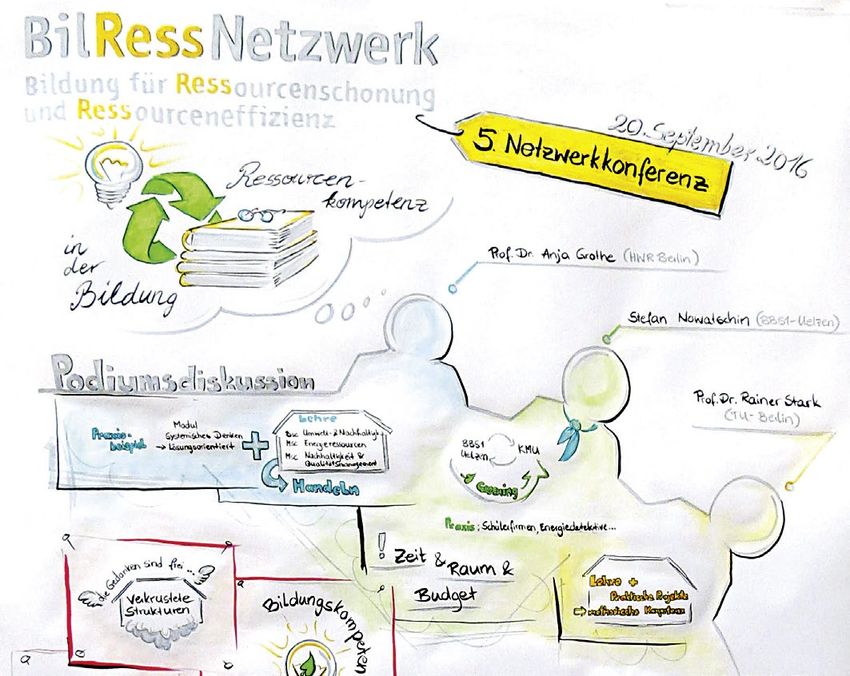 BilRessNetzwerk
Bildung für Ressourcenschonung
und Ressourceneffizienz
20. September 2016
5. Netzwerkkonferenz
Ressourcen-
kompetenz
in
der
Bildung
Prof. Dr. Anja Grothe (HWR Berlin)
Stefan Nowatschin (BBS1-Uelzen)
Prof. Dr. Rainer Stark
(TU-Berlin)
Podiumsdiskussion
Praxis-
beispiel
Modul
Systemisches Denken
→ Lösungsorientiert
+
Lehre
Bsc Umwelt- & Nachhaltigk.
Msc Energieressourcen
Msc Nachhaltigkeit &
Qualitätsmanagement
Handeln
BBS1
Uelzen
KMU
Greening
Praxis: Schülerfirmen, Energiedetektive...
! Zeit &
Raum &
Budget
Lehre +
Praktische Projekte
→ methodische Kompetenz
die Gedanken sind frei ...
Verkrustete
Strukturen
Bildungskompeten